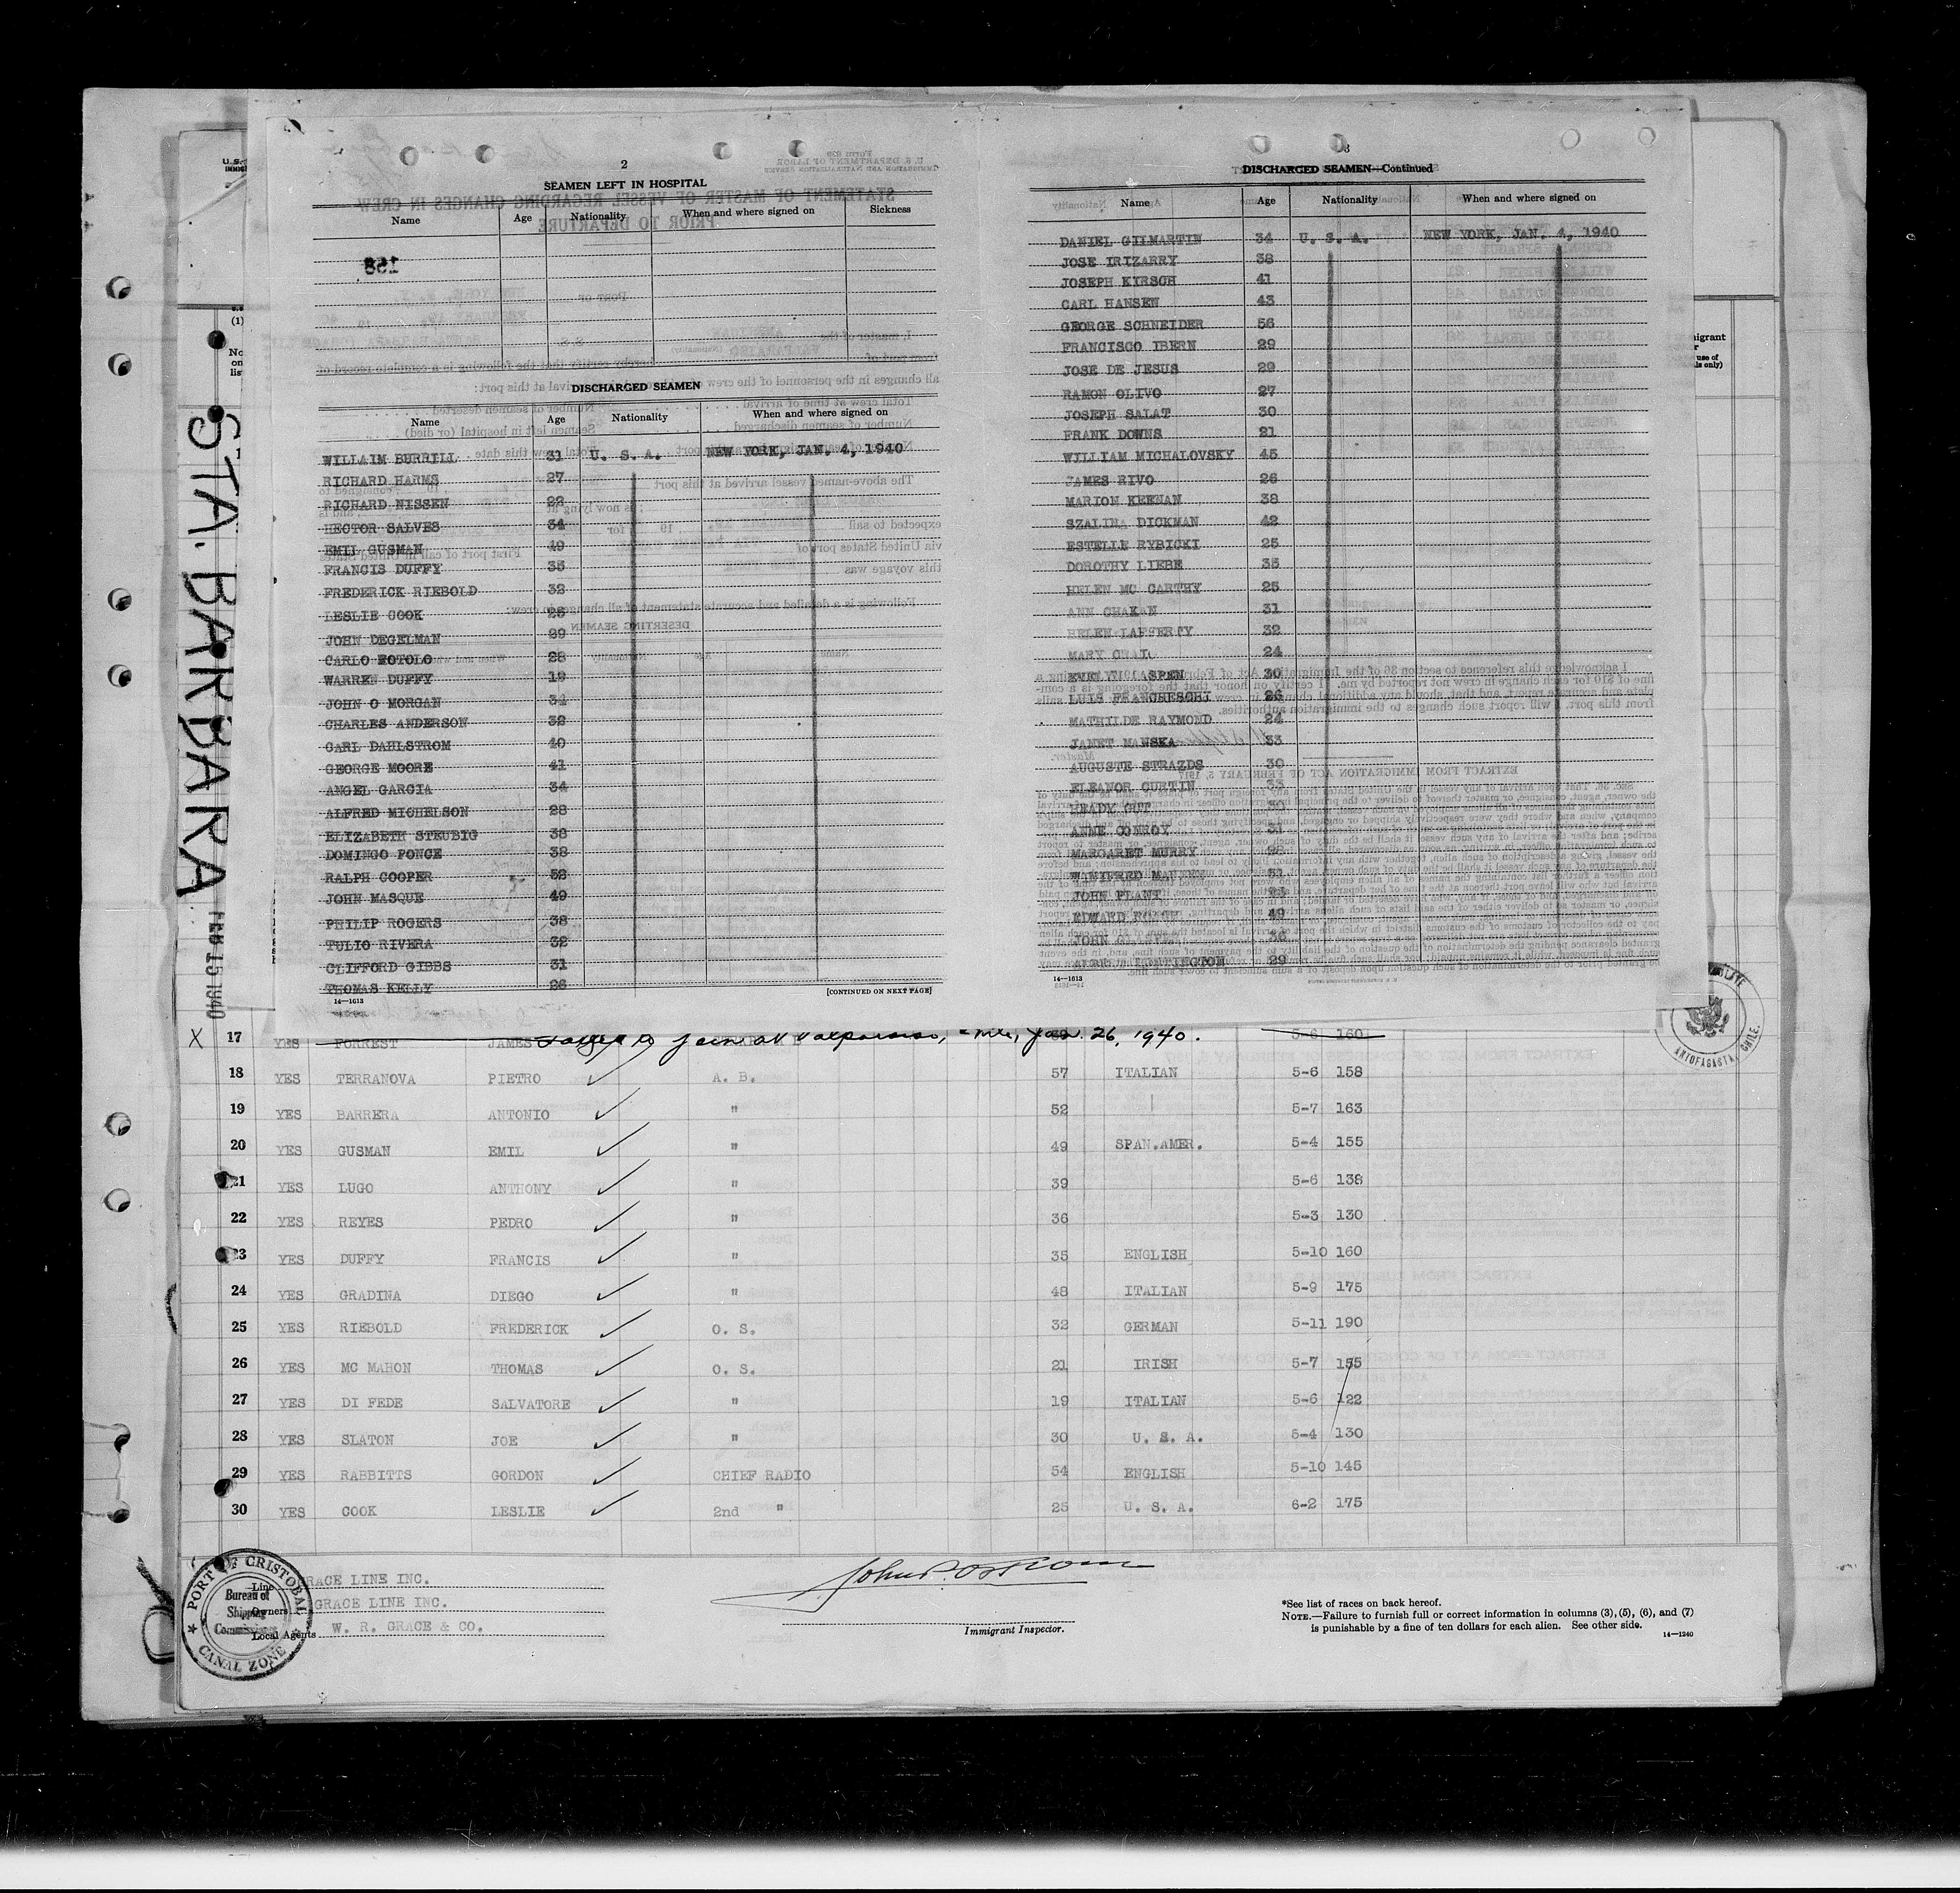 2
SEAMEN LEFT IN HOSPITAL
Name Age Nationality When and where signed on Sickness
DISCHARGED SEAMEN
Name Age Nationality When and where signed on
WILLAIM BURRILL 31 U. S. A. NEW YORK, JAN. 4, 1940
RICHARD HARMS 27
RICHARD NISSEN 22
HECTOR SALVES 34
EMIL GUSMAN 49
FRANCIS DUFFY 35
FREDERICK RIEBOLD 32
LESLIE COOK 25
JOHN DEGELMAN 29
CARLO ROTOLO 28
WARREN DUFFY 19
JOHN O MORGAN 34
CHARLES ANDERSON 32
CARL DAHLSTROM 40
GEORGE MOORE 41
ANGEL GARCIA 34
ALFRED MICHELSON 28
ELIZABETH STEUBIG 38
DOMINGO PONCE 38
RALPH COOPER 52
JOHN MASQUE 49
PHILIP ROGERS 38
TULIO RIVERA 32
CLIFFORD GIBBS 31
THOMAS KELLY 26
14—1613
[CONTINUED ON NEXT PAGE]
3
DISCHARGED SEAMEN—Continued
Name Age Nationality When and where signed on
DANIEL GILMARTIN 34 U. S. A. NEW YORK, JAN. 4, 1940
JOSE IRIZARRY 38
JOSEPH KIRSCH 41
CARL HANSEN 43
GEORGE SCHNEIDER 56
FRANCISCO IBERN 29
JOSE DE JESUS 29
RAMON OLIVO 27
JOSEPH SALAT 30
FRANK DOWNS 21
WILLIAM MICHALOVSKY 45
JAMES RIVO 26
MARION KEENAN 38
SZALINA DICKMAN 42
ESTELLE RYBICKI 25
DOROTHY LIEBE 35
HELEN MC CARTHY 25
ANN CHAKAN 31
HELEN LAFFERTY 32
MARY 24
30
LUIS FRANCHESCHI 26
MATHILDE RAYMOND 24
JANET MANSKA 33
AUGUSTE STRAZDS 30
ELEANOR CURTIN 33
HEADY GUT 30
ANNE CONROY 31
MARGARET MURRY 26
WINIFRED 31
JOHN PLANT
EDWARD 49
JOHN 36
29
14—1613
STA. BARBARA
FEB 15 1940
X 17 YES FORREST JAMES Failed to join at Valparaiso, Chile, Jan. 26, 1940. 5-6 160
18 YES TERRANOVA PIETRO A. B. 57 ITALIAN 5-6 158
19 YES BARRERA ANTONIO " 52 5-7 163
20 YES GUSMAN EMIL " 49 SPAN.AMER. 5-4 155
21 YES LUGO ANTHONY " 39 5-6 138
22 YES REYES PEDRO " 36 5-3 130
23 YES DUFFY FRANCIS " 35 ENGLISH 5-10 160
24 YES GRADINA DIEGO " 48 ITALIAN 5-9 175
25 YES RIEBOLD FREDERICK O. S. 32 GERMAN 5-11 190
26 YES MC MAHON THOMAS O. S. 21 IRISH 5-7 155
27 YES DI FEDE SALVATORE " 19 ITALIAN 5-6 122
28 YES SLATON JOE " 30 U. S. A. 5-4 130
29 YES RABBITTS GORDON CHIEF RADIO 54 ENGLISH 5-10 145
30 YES COOK LESLIE 2nd " 25 U. S. A. 6-2 175
Line GRACE LINE INC.
Owners GRACE LINE INC.
Local Agents W. R. GRACE & CO.
PORT OF CRISTOBAL
Bureau of
Shipping
Commissioner
CANAL ZONE
Immigrant Inspector.
*See list of races on back hereof.
NOTE.—Failure to furnish full or correct information in columns (3), (5), (6), and (7)
is punishable by a fine of ten dollars for each alien. See other side.
14—1240
ANTOFAGASTA, CHILE.